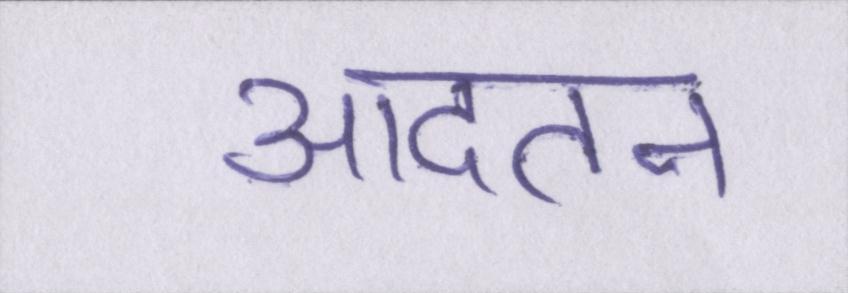 आदतन